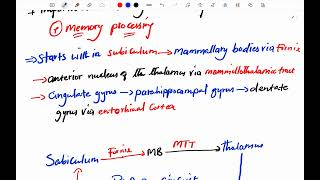 * Memory processing
⇒ Starts with in subiculum → mammellary bodies via fornix
→ anterior nucleus of the thalamus via mammillothalamic tract
→ Cingulate gyrus → parahippocampal gyrus → dentate
gyrus via entorhinal cortex
Subiculum Fornix → MB MTT → Thalamus